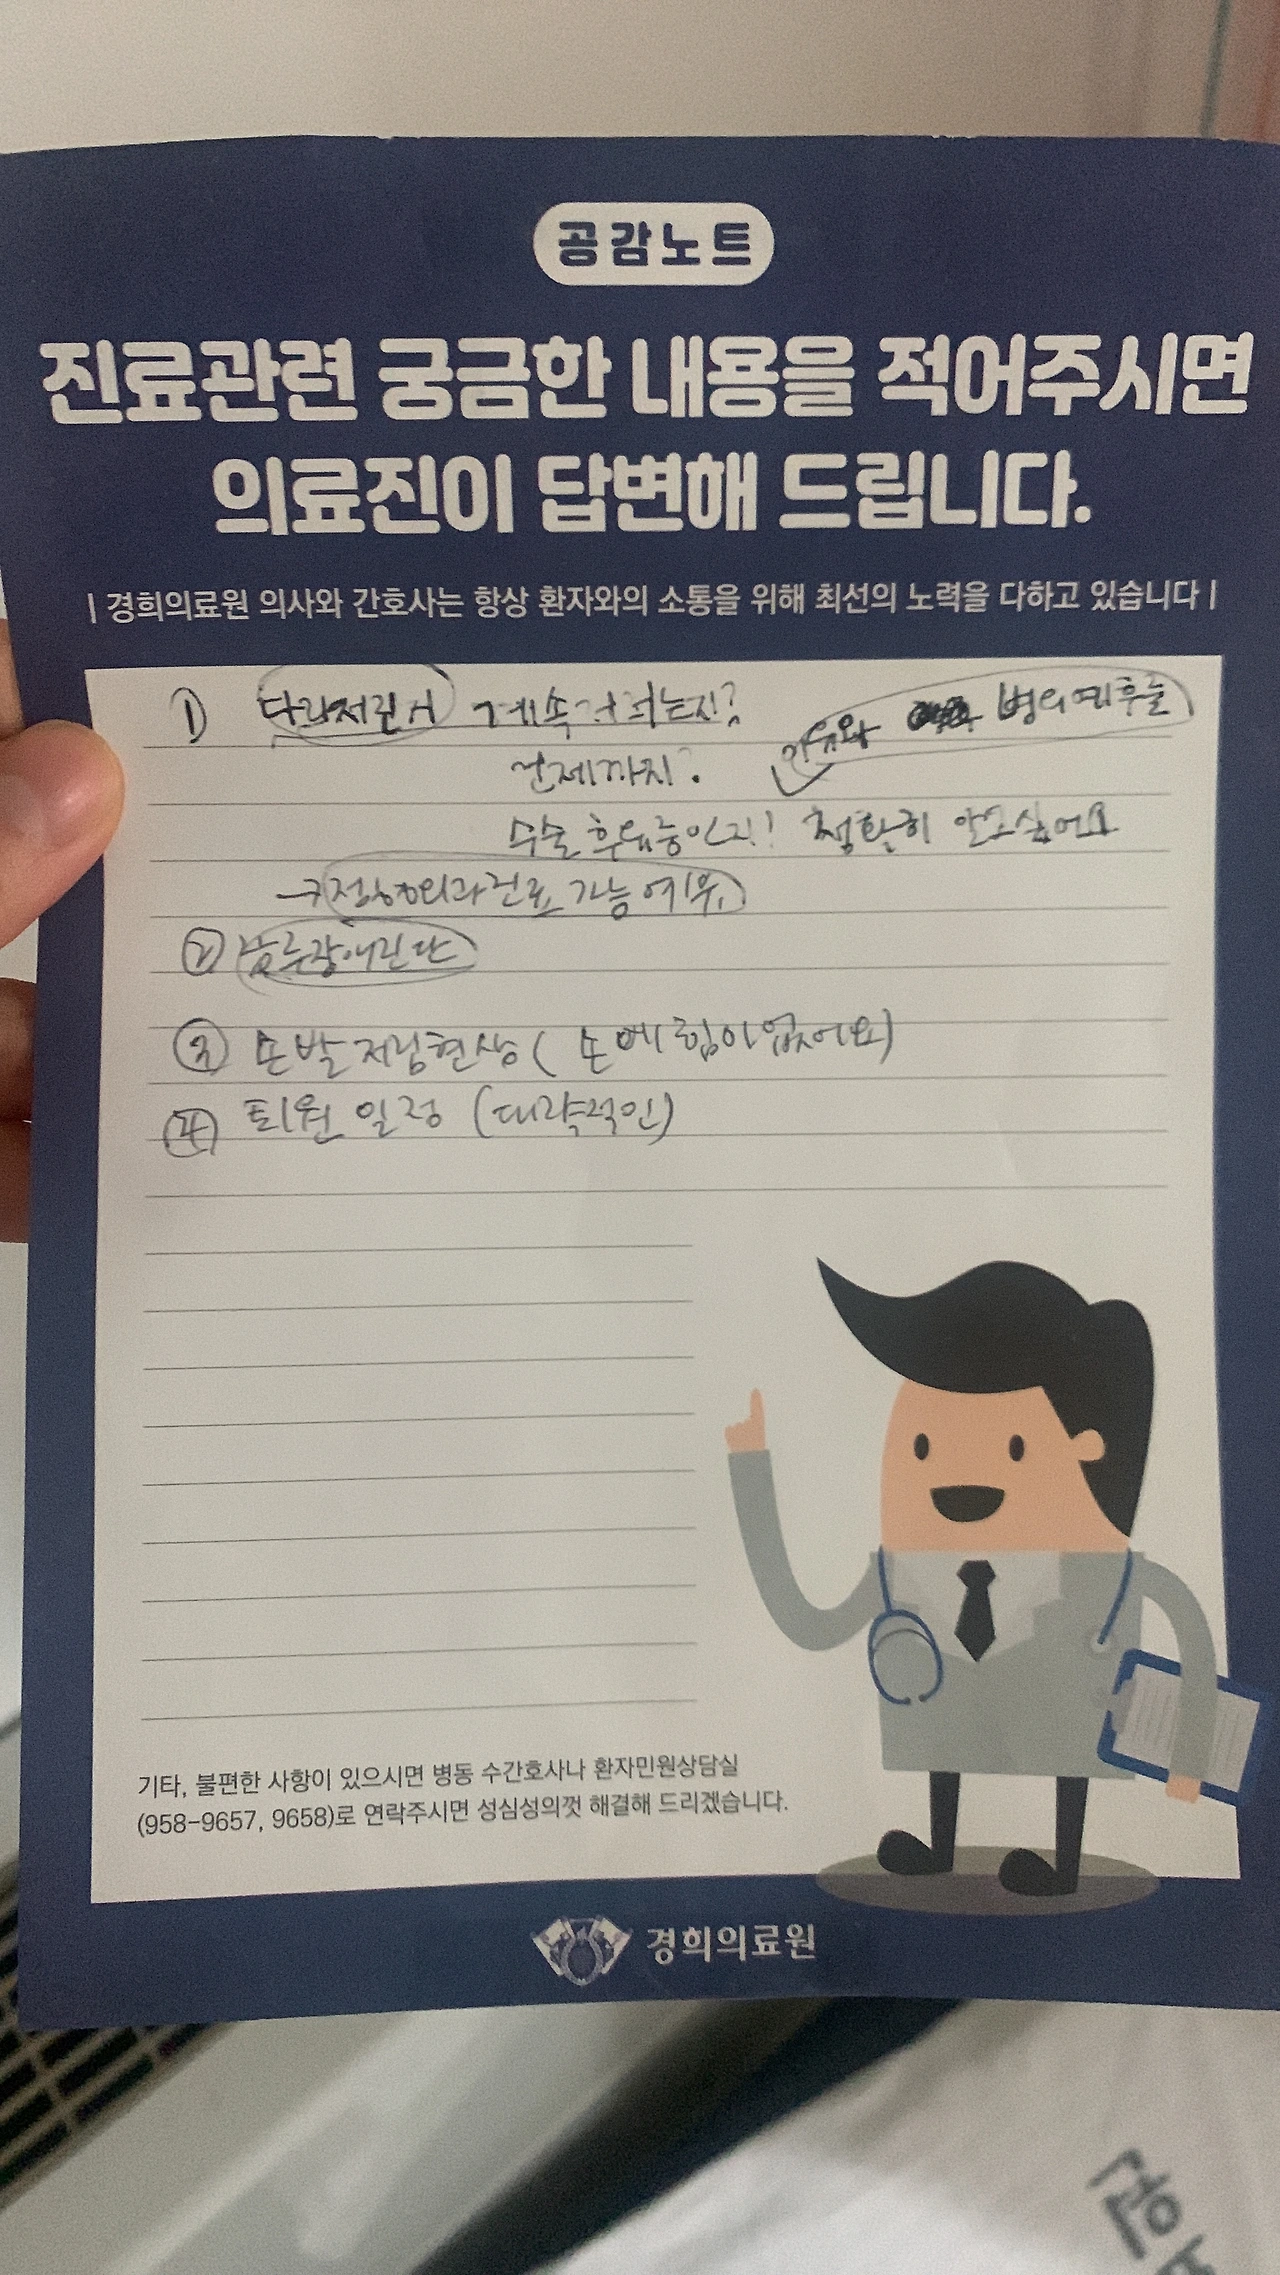 공감노트
진료관련 궁금한 내용을 적어주시면
의료진이 답변해 드립니다.
| 경희의료원 의사와 간호사는 항상 환자와의 소통을 위해 최선의 노력을 다하고 있습니다 |
① 다리저린거 계속 저리는지?
이유와 병의예후를
언제까지?
수술 후유증인지! 정확히 알고싶어요
→ 정형외과진료 가능 여부
② 장애진단
③ 손발저림현상 ( 손에 힘이 없어요)
④ 퇴원 일정 (대략적인)
기타, 불편한 사항이 있으시면 병동 수간호사나 환자민원상담실
(958-9657, 9658)로 연락주시면 성심성의껏 해결해 드리겠습니다.
경희의료원